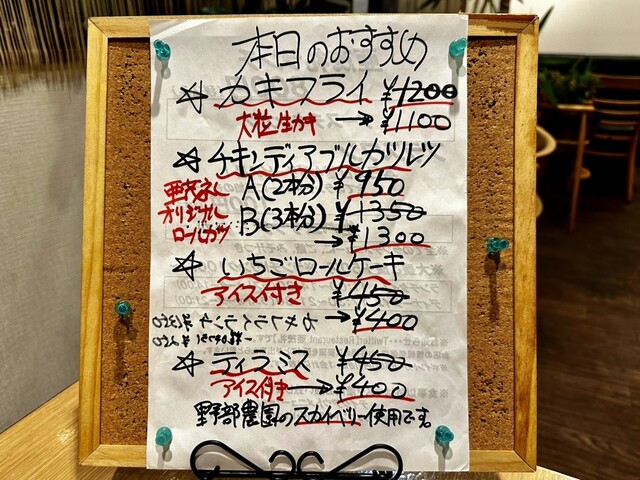 本日のおすすめ
☆カキフライ ¥1200
大粒生カキ → ¥1100
☆チキンディアブルカツレツ
亜茂ねし A(2本分) ¥950
オリジナル B(3本分) ¥1350
ロールカツ → ¥1300
☆いちごロールケーキ
アイス付き ¥450
→ ¥400
☆ティラミス ¥450
アイス付き → ¥400
野部農園のスカイベリー使用です。